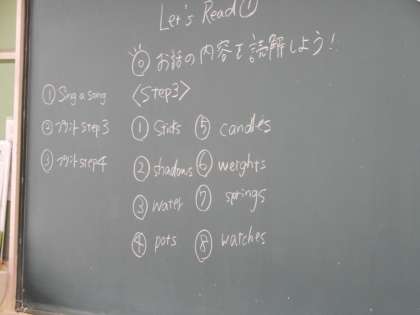 Let's Read①
お話の内容を読解しよう！
① Sing a song
② プリント step3
③ プリント step4
〈Step3〉
① Sticks ⑤ candles
② shadows ⑥ weights
③ water ⑦ springs
④ pots ⑧ watches